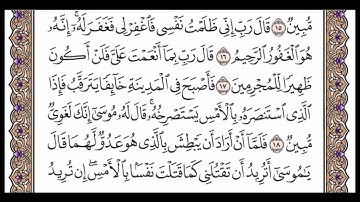 مُّبِينٌ ١٥ قَالَ رَبِّ إِنِّي ظَلَمْتُ نَفْسِي فَٱغْفِرْ لِي فَغَفَرَ لَهُۥٓ إِنَّهُۥ
هُوَ ٱلْغَفُورُ ٱلرَّحِيمُ ١٦ قَالَ رَبِّ بِمَآ أَنْعَمْتَ عَلَىَّ فَلَنْ أَكُونَ
ظَهِيرًا لِّلْمُجْرِمِينَ ١٧ فَأَصْبَحَ فِي ٱلْمَدِينَةِ خَآئِفًا يَتَرَقَّبُ فَإِذَا
ٱلَّذِي ٱسْتَنصَرَهُۥ بِٱلْأَمْسِ يَسْتَصْرِخُهُۥ قَالَ لَهُۥ مُوسَىٰٓ إِنَّكَ لَغَوِيٌّ
مُّبِينٌ ١٨ فَلَمَّآ أَنْ أَرَادَ أَن يَبْطِشَ بِٱلَّذِي هُوَ عَدُوٌّ لَّهُمَا قَالَ
يَٰمُوسَىٰٓ أَتُرِيدُ أَن تَقْتُلَنِي كَمَا قَتَلْتَ نَفْسًۢا بِٱلْأَمْسِ إِن تُرِيدُ